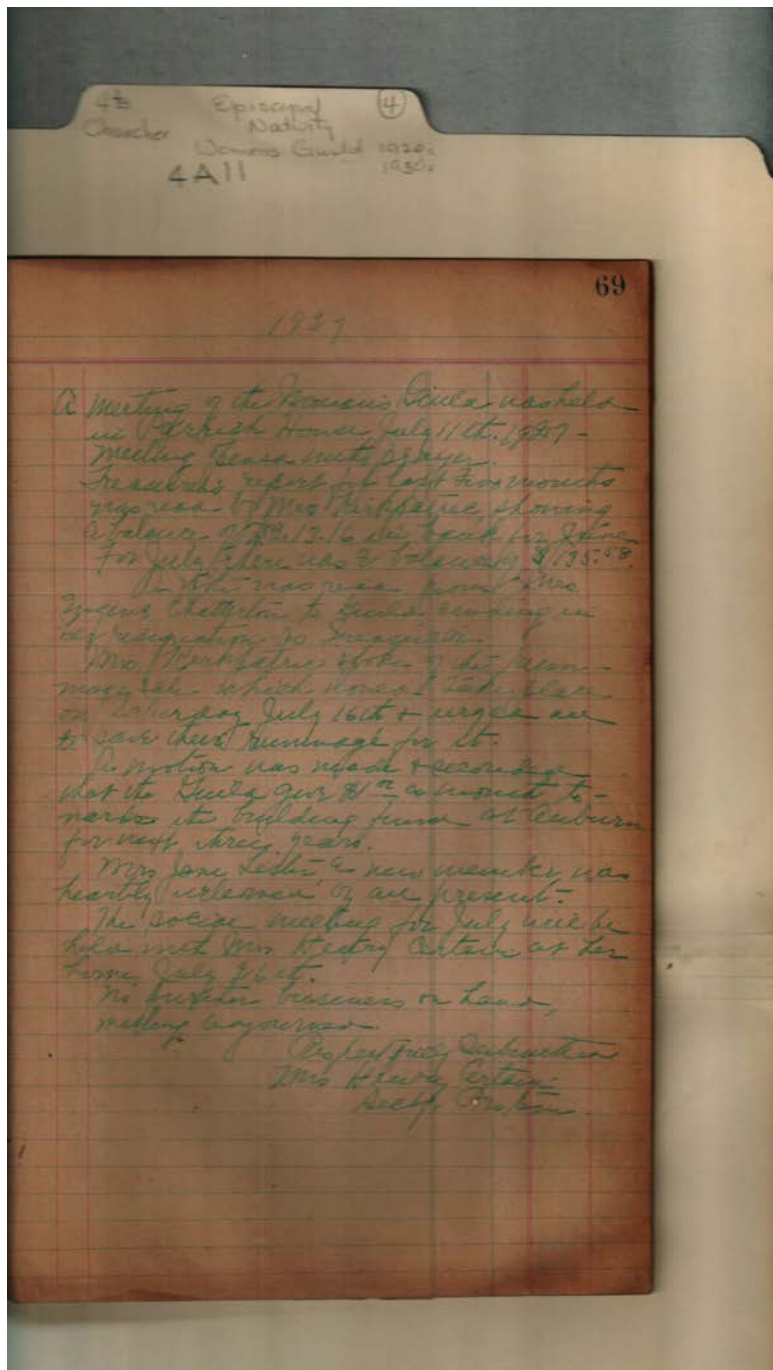 4 Episcopal 4
Churches Nativity
Womens Guild 1920s
4A11 1930s
69
1927
A meeting of the Woman's Guild was held
in Parrish House, July 11th. 1927 -
Meeting opened with prayer.
Treasurer's report for last two months
was read by Mrs Kirkpatric, showing
a balance of 13.16 in bank for June
For July there was a balance of $135.58.
A was read from Mrs
Chatterton to Guild sending in
her resignation as Treasurer.
Mrs Kirkpatric spoke of the rum-
mage sale which would take place
on Saturday July 16th & urged all
to save their rummage for it.
A motion was made & seconded
that the Guild give $1 a month to-
wards the building fund at Auburn
for next three years.
Mrs Jane Leslie, a new member was
heartly welcomed by all present.
The social meeting for July will be
held with Mrs Henry Certain at her
home July 26th.
No further business on hand,
meeting adjourned.
Respectfully Submitted
Mrs Henry Certain
Secty Protem